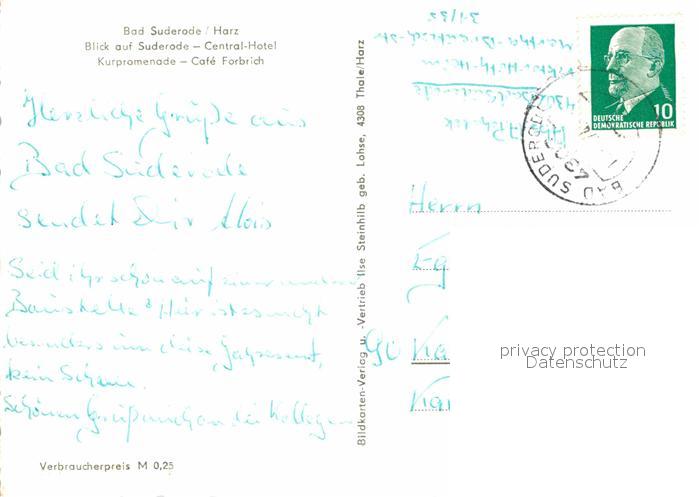 Bad Suderode / Harz
Blick auf Suderode – Central-Hotel
Kurpromenade – Café Forbrich
Herzliche Grüße aus
Bad Suderode
sendet Dir Alois
Seid ihr schon auf einer anderen
Baustelle? Hier ist es nicht
besonders um diese Jahreszeit,
kein Schnee.
Schönen Gruß auch an die Kollegen
Verbraucherpreis M 0,25
Bildkarten-Verlag u. -Vertrieb Ilse Steinhilb geb. Lohse, 4308 Thale/Harz
31/35
4307
Bad Suderode
10
DEUTSCHE
DEMOKRATISCHE REPUBLIK
BAD SUDERODE
430
Herrn
privacy protection
Datenschutz